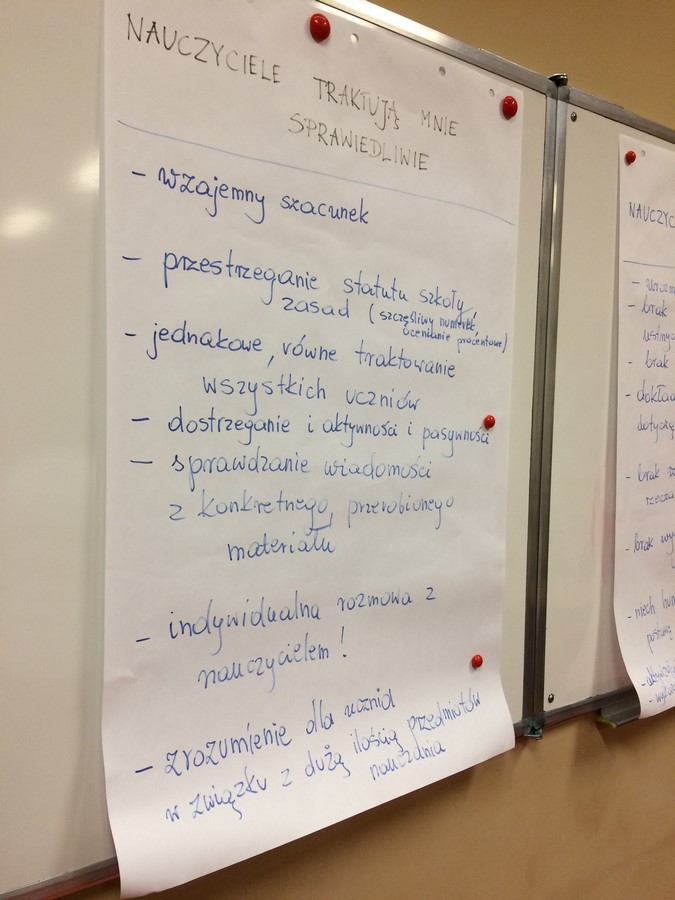 NAUCZYCIELE TRAKTUJĄ MNIE
SPRAWIEDLIWIE
- wzajemny szacunek
- przestrzeganie statutu szkoły,
zasad (szczęśliwy numerek,
ocenianie procentowe)
- jednakowe, równe traktowanie
wszystkich uczniów
- dostrzeganie i aktywności i pasywności
- sprawdzanie wiadomości
z konkretnego, przerobionego
materiału
- indywidualna rozmowa z
nauczycielem!
- zrozumienie dla ucznia
w związku z dużą ilością przedmiotów
nauczania
NAUCZYC
- brak
- brak
- dokład
- brak
- brak
- niech